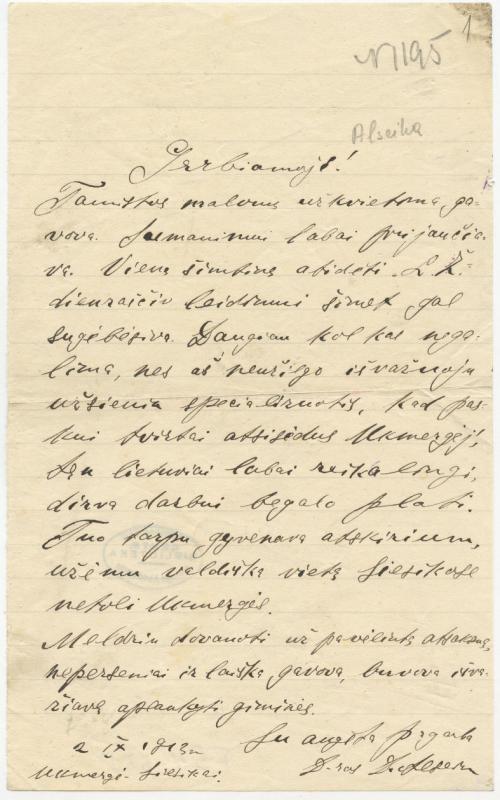 1
N 1195
Alseika
Gerbiamoji!
Tamistos malonų užkvietimą ga-
vova. Sumanimui labai prijaučia-
va. Vieną šimtinę atidėti L. Ž-
dienraščiu leidimui šimet gal
sugėbėsiva. Daugiau kol kas nega-
lima, nes aš neužilgo išvažiuoju
užsienin specializuotis, kad pas-
kui tvirtai atsisėdus Ukmergėj,
ten lietuviai labai reikalingi,
dirva darbui begalo plati.
Tuo tarpu gyvenava atskirium,
užėmu valdišką vietą Siesikose
netoli Ukmergės.
Meldžiu dovanoti už pavėlintą atsakymą,
neperseniai ir laišką gavova, buvova išva-
žiavę aplankyti giminės.
2 IX 1913 m
Su augšta pagarba
Ukmergė-Siesikai.
D-ras